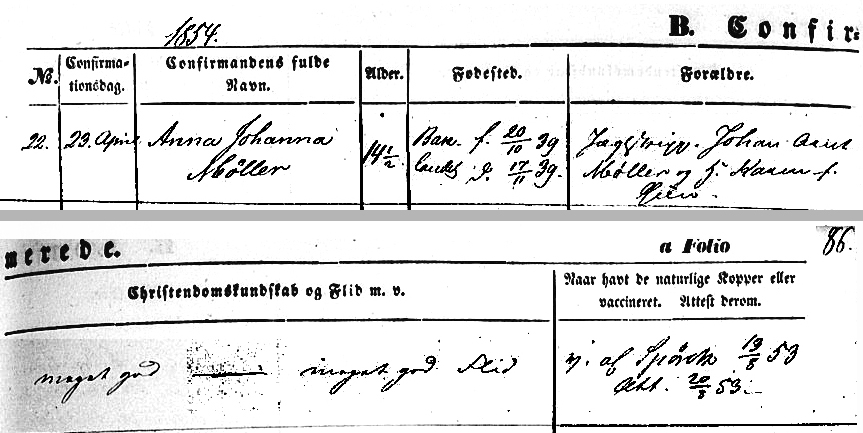 1854.
B. Confir-
No. Confirma-tionsdag. Confirmandens fulde Navn. Alder. Fødested. Forældre.
22. 23. April Anna Johanna 14 1/2 f. 20/10 39 Johan
Möller d. 17/11 39. Möller og H. Karen f.
merede. a Folio 86.
Christendomskundskab og Flid m. v. Naar havt de naturlige Kopper eller
vaccineret. Attest derom.
meget god — meget god Flid v. af Spörck 19/8 53
Att. 20/8 53.